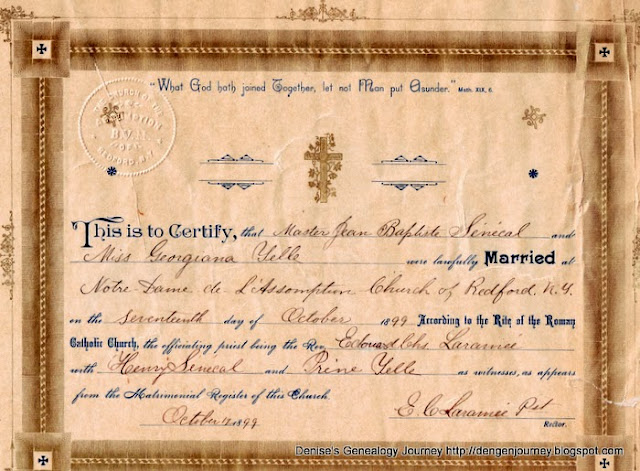 "What God hath joined Together, let not Man put Asunder." Math. XIX, 6.
CHURCH OF THE
B.V.M.
This is to Certify, that Master Jean Baptiste Sénécal and
Miss Georgiana Yelle were lawfully Married at
Notre-Dame de L'Assomption Church of Redford N.Y.
on the Seventeenth day of October 1899 According to the Rite of the Roman
Catholic Church, the officiating priest being the Rev. Edouard Chs. Laramée
with Henry Senécal and Prine Yelle as witnesses, as appears
from the Matrimonial Register of this Church.
October 17, 1899 E. C. Laramée Pst
Rector.
Denise's Genealogy Journey http://dengenjourney.blogspot.com